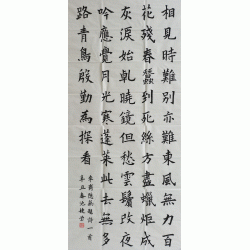 相見時難別亦難東風無力百
花殘春蠶到死絲方盡蠟炬成
灰淚始乹曉鏡但愁雲鬢改夜
吟應覺月光寒蓬萊此去無多
路青鳥殷勤為探看
李商隱無題詩一首